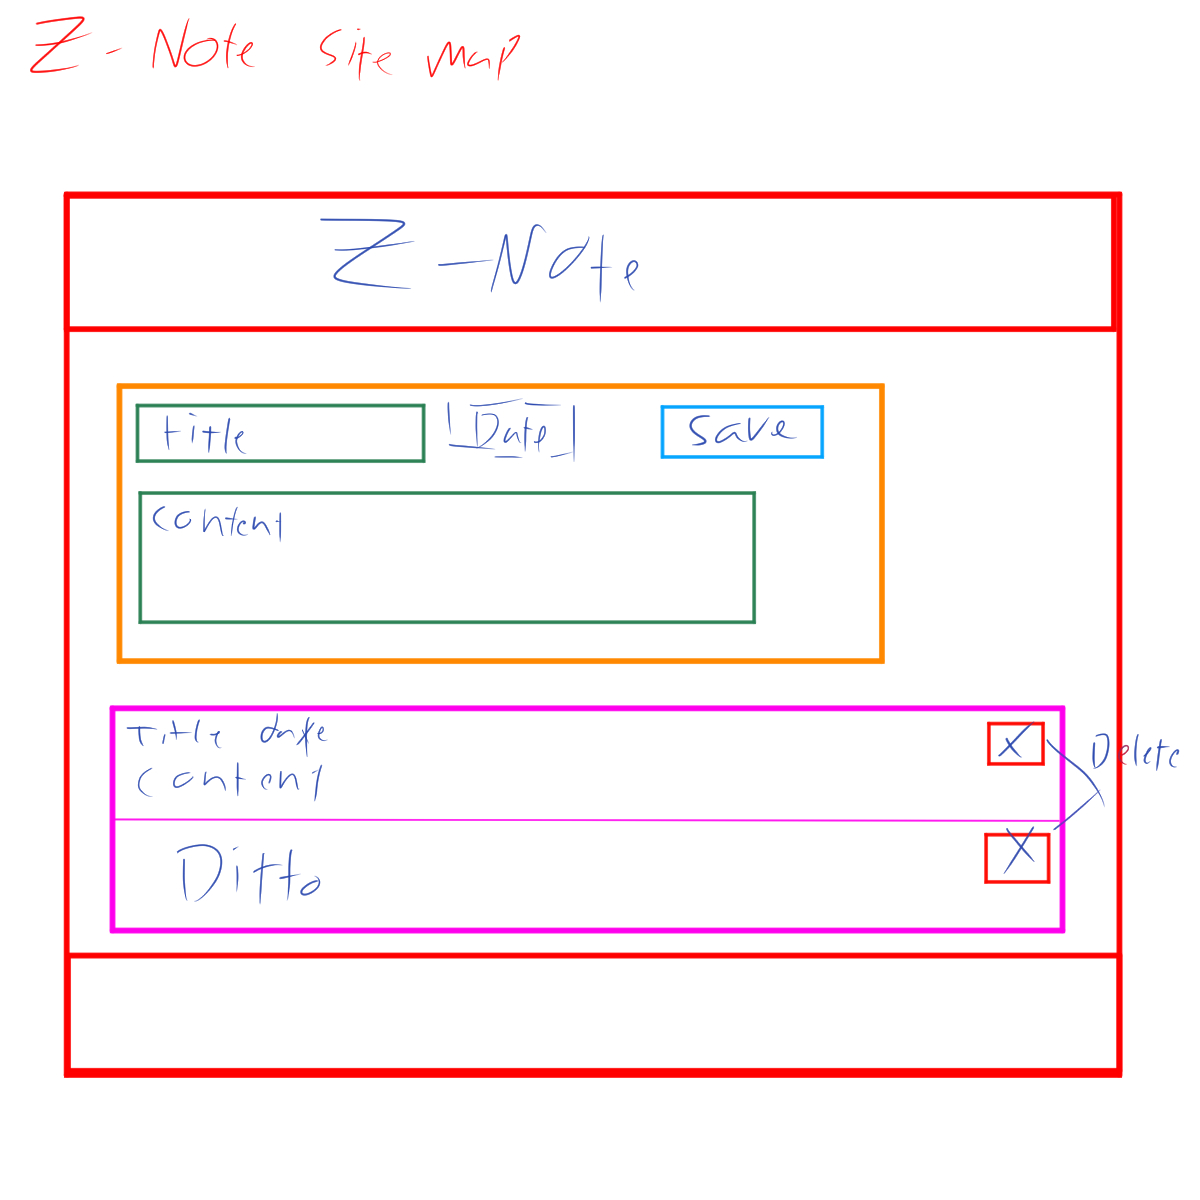 Z - Note Site map
Z - Note
title Date save
content
Title date X
content
Delete
Ditto X